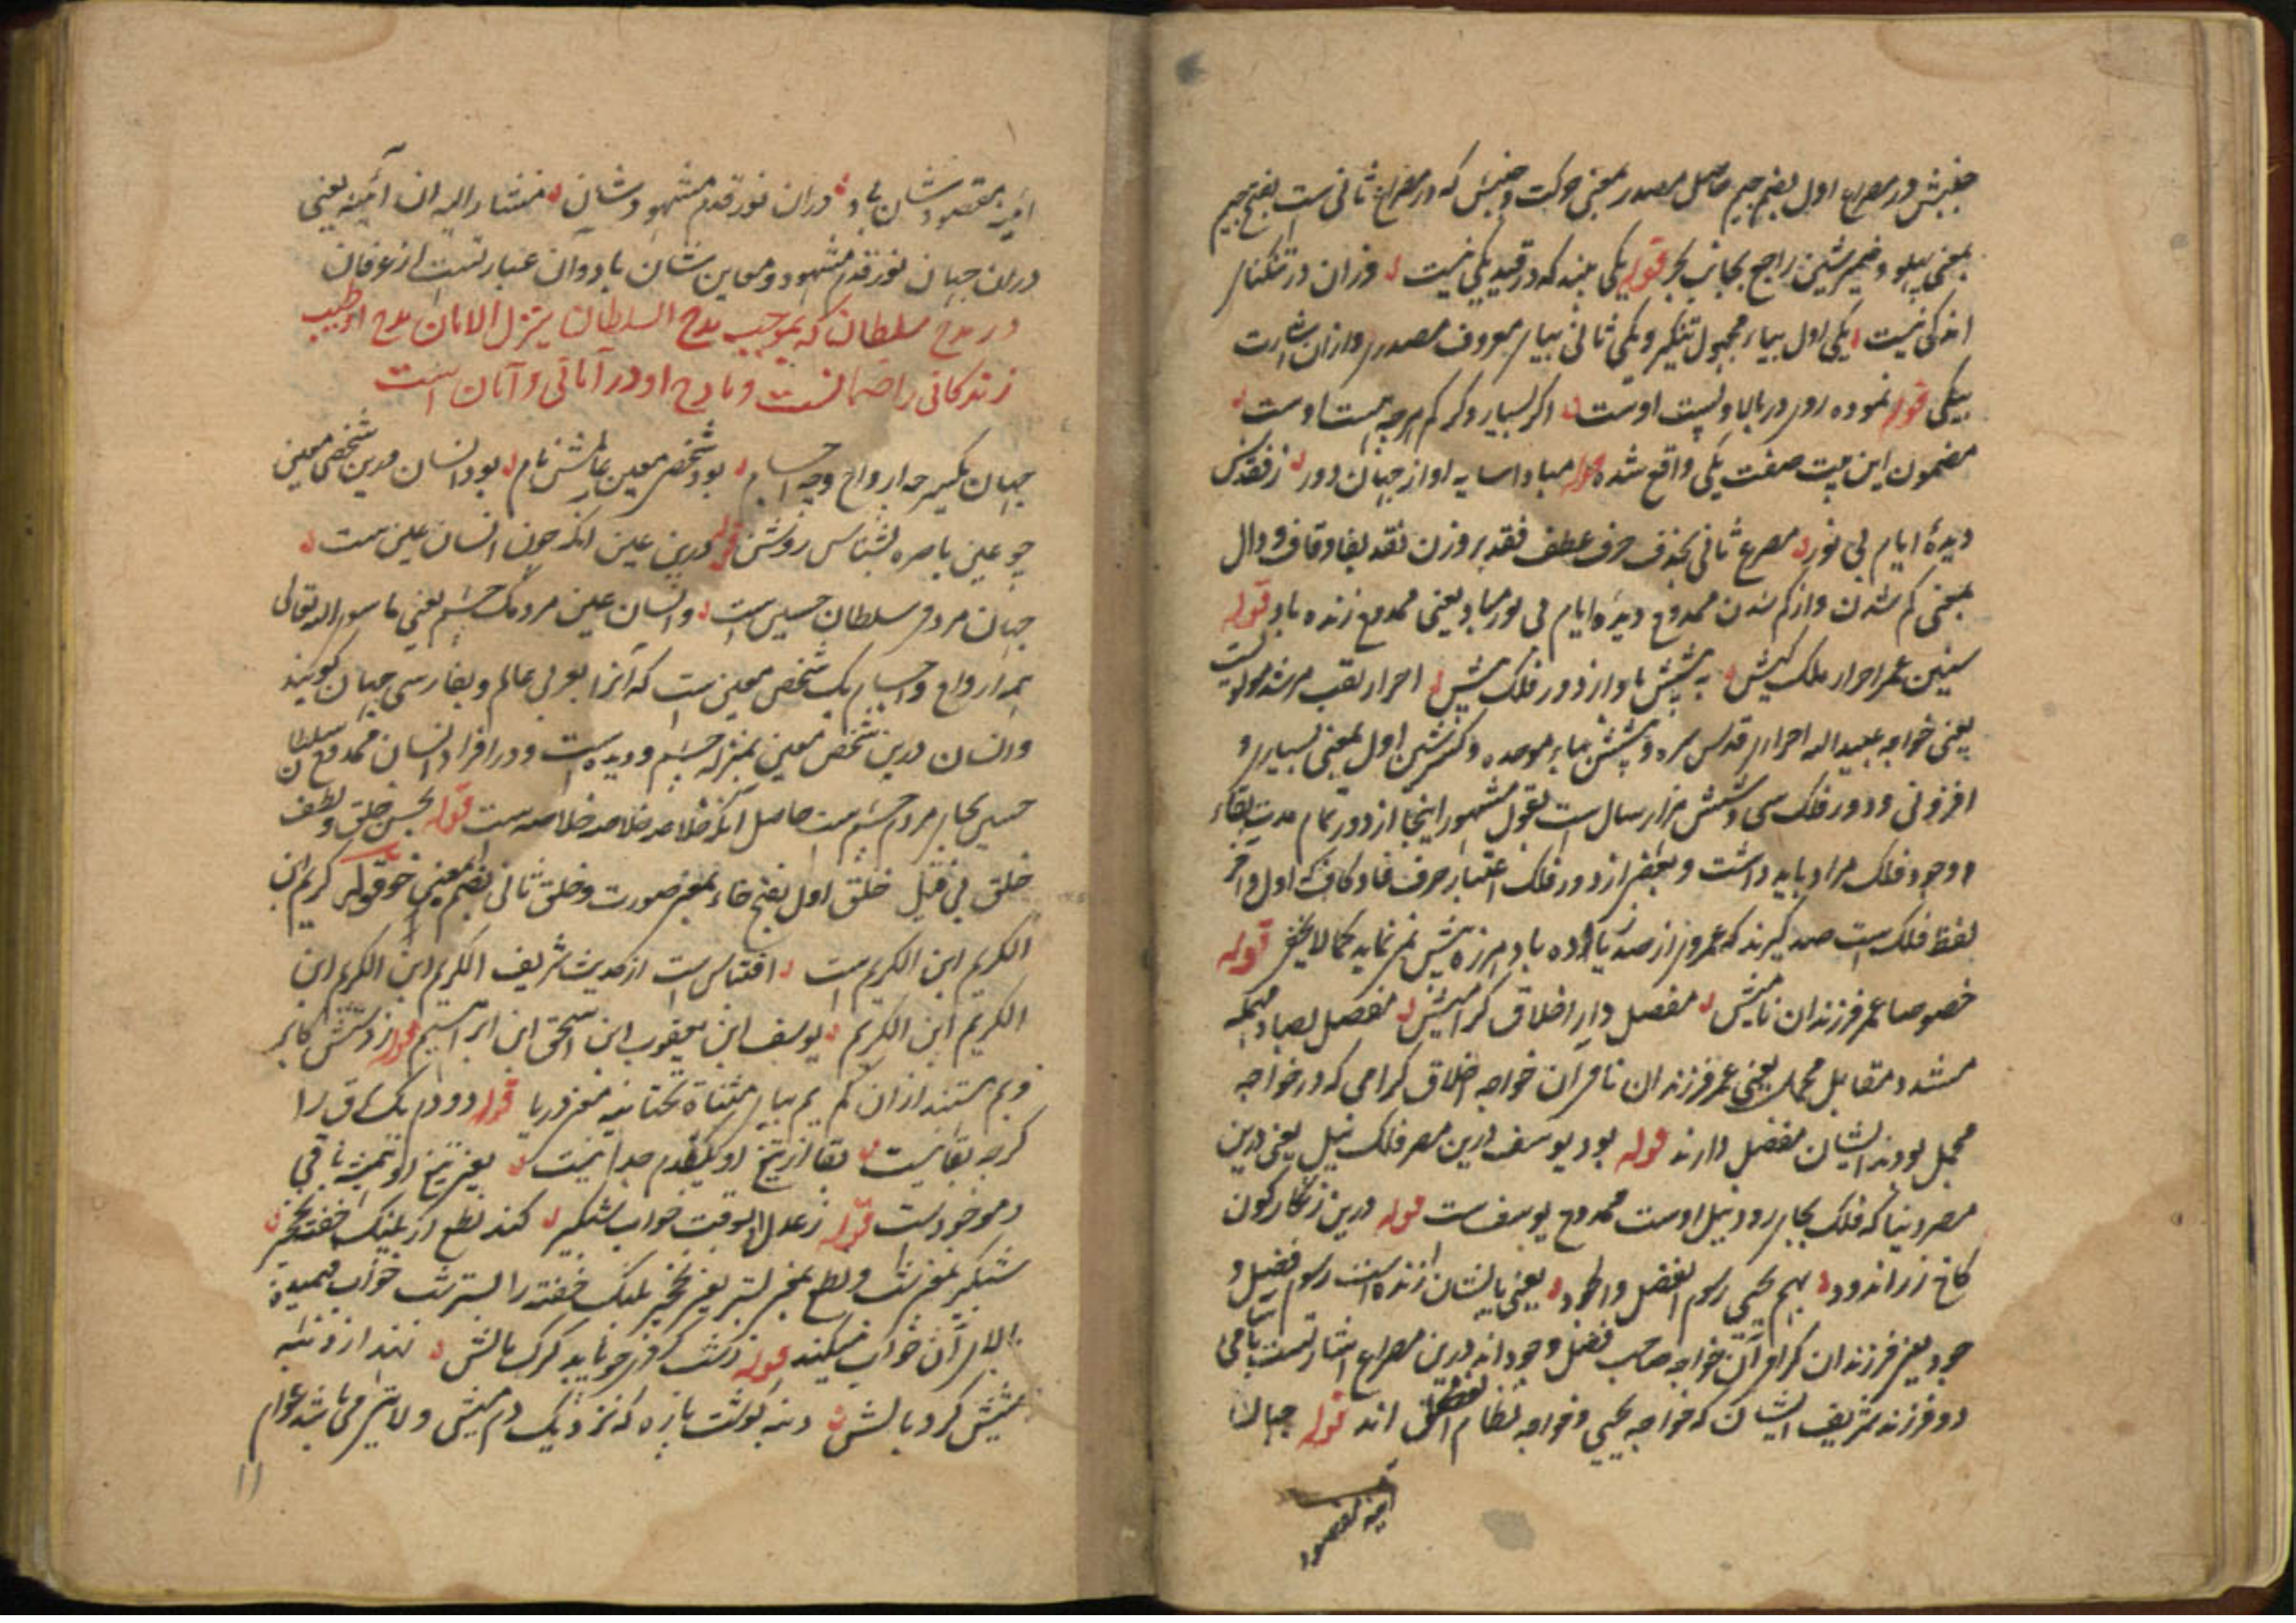 جنبش در مصراع اول بضم جیم حاصل مصدر بمعنی حرکت و جنبش که در مصراع ثانی است بفتح جیم
بمعنی پهلو و ضمیر شین راجع بجانب بحر قوله یکی بیند که در قید یکی نیست وزان در تنگنای
اندکی نیست یکی اول بیاء مجهول تنکیر و یکی ثانی بیاء معروف مصدری و ازان اشارت
بیکی قوله نموده روی در بالا و پست اوست اگر بسیار و گر کم هرچه هست اوست
مضمون این بیت صفت یکی واقع شده قوله مبادا سایه او از جهان دور ز فقدش
دیدۀ ایام بی نور مصرع ثانی بحذف حرف عطف فقد بر وزن نقد بفا و قاف و دال
بمعنی کم شدن و از کم شدن ممدوح دیدۀ ایام بی نور مباد یعنی ممدوح زنده باد قوله
سنین عمر احرار ملک کیش به بیشش باد از دور فلک بیش احرار لقب مرشد مولویست
یعنی خواجه عبید الله احرار قدس سره و بیشش بباء موحده و کسر شین اول بمعنی بسیاری و
افزونی و دور فلک سی و شش هزار سال است بقول مشهور اینجا از دور تمام مدت بقاء
و وجود فلک مراد باید داشت و بعضی از دور فلک اعتبار حرف فا و کاف که اول و آخر
لفظ فلک است صد گیرند که عمر وی از صد زیاده باد هرزه بیش نمی نماید کما لا یخفی قوله
خصوصا عمر فرزندان نامیش مفصل دار اخلاق گرامیش مفصل بصاد مهمله
مشدد مقابل مجمل یعنی عمر فرزندان نامی ان خواجه اخلاق گرامی که در خواجه
مجمل بودند ایشان مفصل دارند قوله بود یوسف درین مصر فلک نیل یعنی درین
مصر دنیا که فلک بجای رود نیل اوست ممدوح یوسف است قوله درین زنگارگون
کاخ زراندود بهم یحیی رسوم الفضل والجود یعنی بایشان زنده است رسوم فضل و
جود یعنی فرزندان گرامی آن خواجه صاحب فضل وجود اند درین مصراع اشارتست بنامی
دو فرزند شریف ایشان که خواجه یحیی و خواجه نظام اند قوله جهان
آینه مقصود
آینه مقصود شان باد دران نور قدم مشهود شان مشار الیه ان آئینه یعنی
دران جهان نور قدم مشهود و معاین شان باد و آن عبارتست از عرفان
در مدح سلطان که بموجب مدح السلطان ینزل الامان مدح او طیب
زندگانی را ضمانست و مادح او در آمانی و آمان است
جهان یکسر چه ارواح و چه اجسام بود شخص معین عالمش نام بود انسان درین شخص معین
چو عین باصره بشناس روشن قوله درین عین آنکه چون انسان عین ست
جهان مردمی سلطان حسین است و انسان عین مردمک چشم یعنی ما سوی الله تعالی
همه ارواح و اجسام یک شخص معین ست که آنرا بعربی عالم و بفارسی جهان گویند
و انسان درین شخص معین بمنزله چشم و دیده است و در افراد انسان ممدوح سلطان
حسین بجای مردم چشم ست حاصل آنکه خلاصه خلاصه خلاصه ست قوله بحسن خلق و لطف
خلق بی قیل خلق اول بفتح خاء بمعنی صورت و خلق ثانی بضم بمعنی خو قوله کریم ابن
الکریم ابن الکریم است اقتباس است از حدیث شریف الکریم ابن الکریم ابن
الکریم ابن الکریم یوسف ابن یعقوب ابن اسحق ابن ابراهیم قوله ز دستش کابر
و یم هستند ازان کم یم بیاء مثناة تحتانیه بمعنی دریا قوله دو دم یک ساق را
گرچه بقا نیست بقا از تیغ او یکدم جدا نیست یعنی تیغ او همیشه باقی
و موجود ست قوله ز عدل او بوقت خواب شبگیر کند نطع از پلنگ خفته نخچیر
شبگیر بمعنی شب و نطع بمعنی بستر یعنی نخچیر پلنگ خفته را بستر شب خواب فهمیده
بالای آن خواب میکند قوله ز دشت گرم جو باید گرگ مالش نهد از دنبه
میش گرد بالش دنبه گوشت پاره که نزدیک دم میش و لایتی می باشد عوام
۱۱